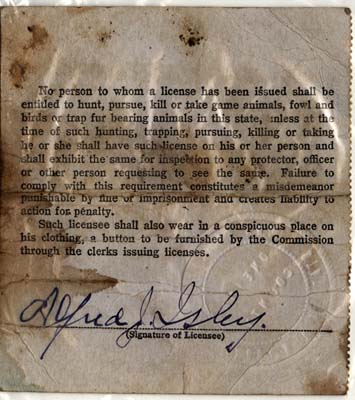 No person to whom a license has been issued shall be
entitled to hunt, pursue, kill or take game animals, fowl and
birds or trap fur bearing animals in this state, unless at the
time of such hunting, trapping, pursuing, killing or taking
he or she shall have such license on his or her person and
shall exhibit the same for inspection to any protector, officer
or other person requesting to see the same. Failure to
comply with this requirement constitutes a misdemeanor
punishable by fine or imprisonment and creates liability to
action for penalty.
Such licensee shall also wear in a conspicuous place on
his clothing, a button to be furnished by the Commission
through the clerks issuing licenses.
Alfred J. Isley.
(Signature of Licensee)